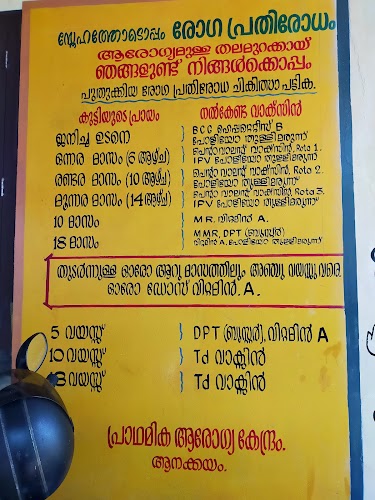 സ്നേഹത്തോടൊപ്പം രോഗ പ്രതിരോധം
ആരോഗ്യമുള്ള തലമുറക്കായ്
ഞങ്ങളുണ്ട് നിങ്ങൾക്കൊപ്പം
പുതുക്കിയ രോഗ പ്രതിരോധ ചികിത്സാ പട്ടിക.
കുട്ടിയുടെ പ്രായം നൽകേണ്ട വാക്സിൻ
ജനിച്ച ഉടനെ BCG ഹെപ്പറ്റൈറ്റീസ് B
പോളിയോ തുള്ളിമരുന്ന്
ഒന്നര മാസം (6 ആഴ്ച) പെന്റാവാലന്റ് വാക്സിൻ, Rota 1.
IPV പോളിയോ തുള്ളിമരുന്ന്
രണ്ടര മാസം (10 ആഴ്ച) പെന്റാ വാലന്റ് വാക്സിൻ, Rota 2.
പോളിയോ തുള്ളിമരുന്ന്
മൂന്നര മാസം (14 ആഴ്ച) പെന്റാ വാലന്റ് വാക്സിൻ, Rota 3.
IPV പോളിയോ തുള്ളിമരുന്ന്
10 മാസം M.R. വിറ്റമിൻ A.
18 മാസം MMR, DPT (ബൂസ്റ്റർ)
വിറ്റമിൻ A, പോളിയോ തുള്ളിമരുന്ന്
തുടർന്നുള്ള ഓരോ ആറു മാസത്തിലും അഞ്ചു വയസ്സു വരെ
ഓരോ ഡോസ് വിറ്റമിൻ. A.
5 വയസ്സ് DPT (ബൂസ്റ്റർ), വിറ്റമിൻ A
10 വയസ്സ് Td വാക്സിൻ
വയസ്സ് Td വാക്സിൻ
പ്രാഥമിക ആരോഗ്യ കേന്ദ്രം.
ആനക്കയം.